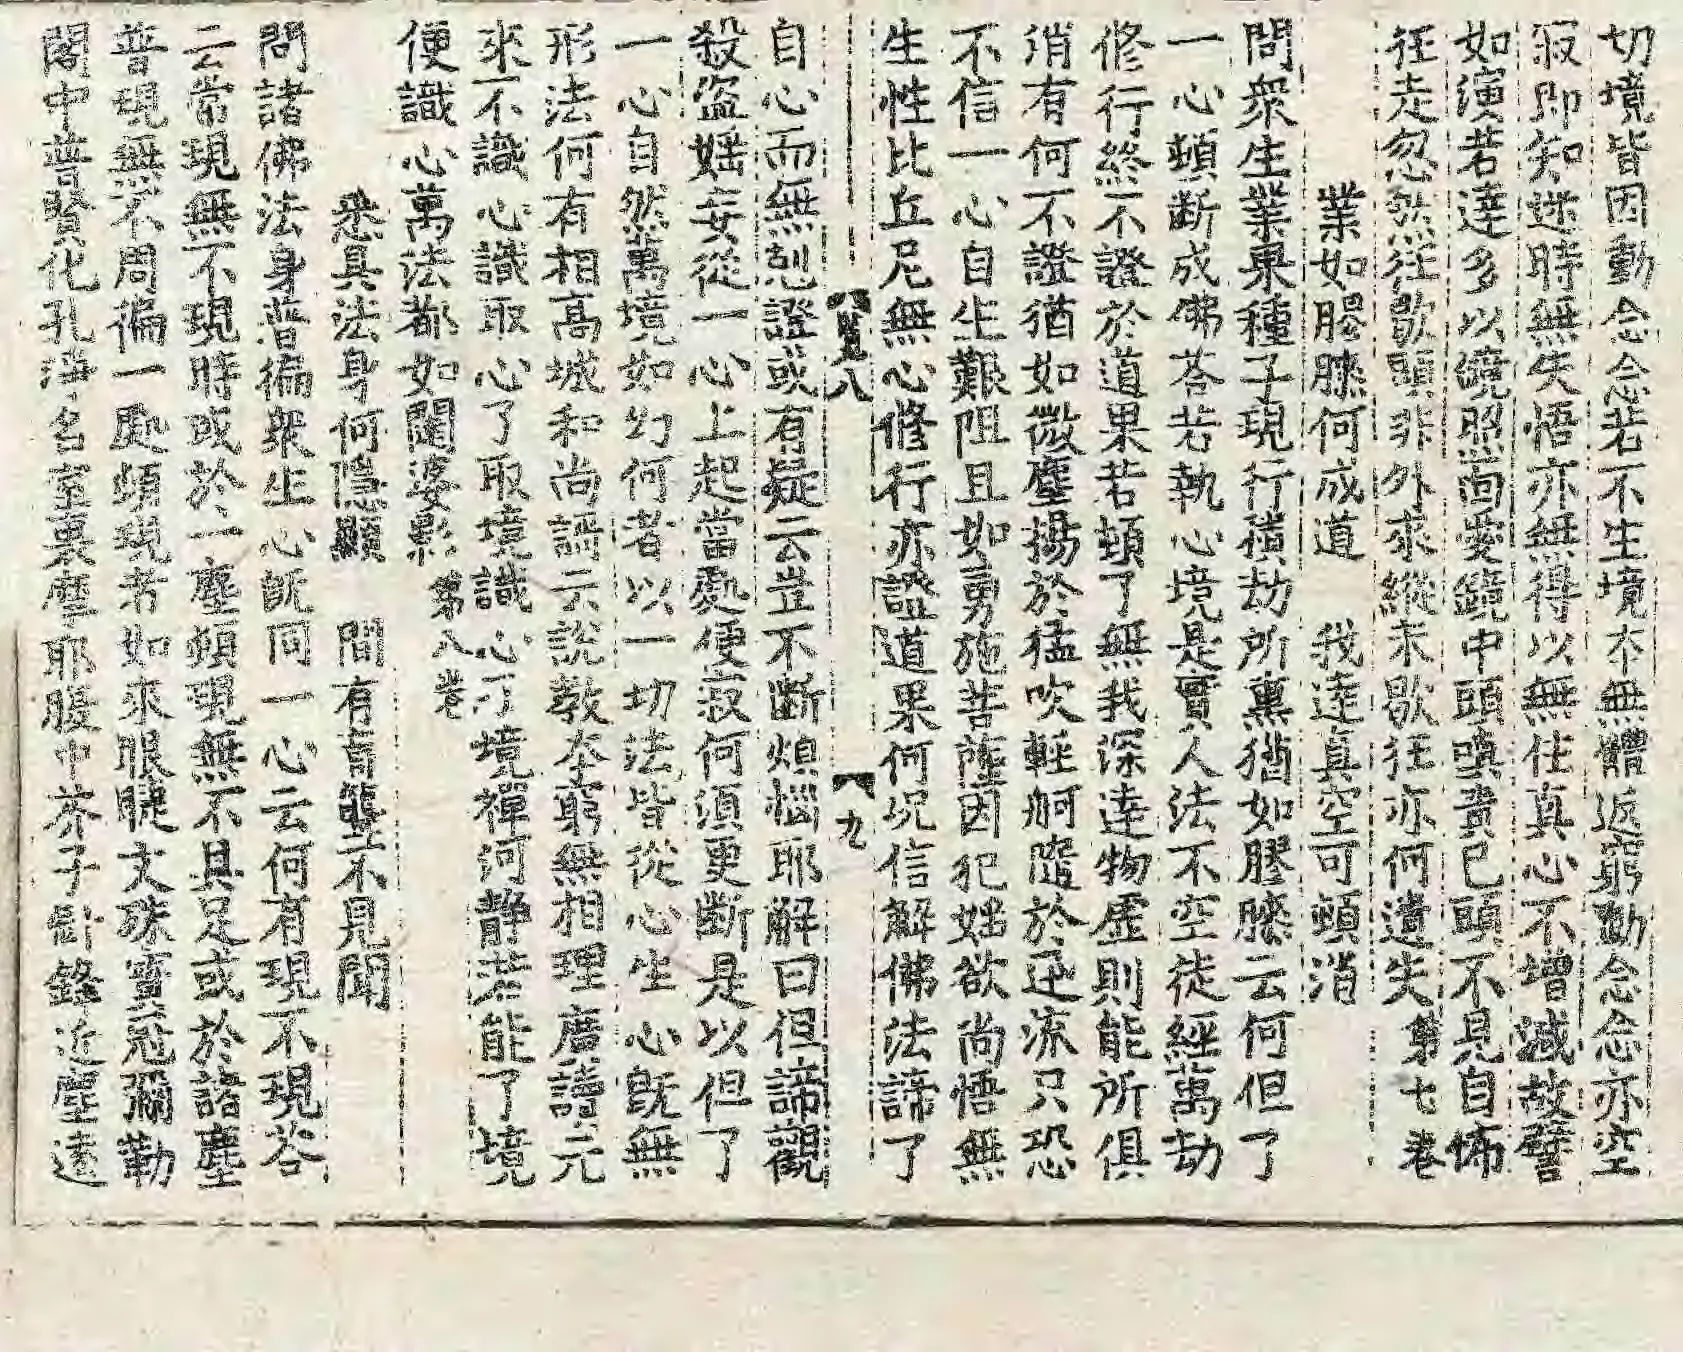 切境皆因動念念若不生境本無體返窮動念念亦空
寂即知迷時無失悟亦無得以無住真心不增減故譬
如演若達多以鏡照面愛鏡中頭嗔責己頭不見自怖
狂走忽然狂歇頭非外來縱未歇狂亦何遺失第七卷
業如膠𣾰何成道　我達真空可頓消
問衆生業果種子現行積劫所熏猶如膠𣾰云何但了
一心頓斷成佛荅若執心境是實人法不空徒經萬劫
修行終不證於道果若頓了無我深達物虛則能所俱
消有何不證猶如微塵揚於猛吹輕舸隨於迅流只恐
不信一心自生艱阻且如勇施菩薩因犯婬欲尚悟無
生性比丘尼無心修行亦證道果何况信解佛法諦了
八　九
自心而無剋證或有疑云豈不斷煩惱耶解曰但諦觀
殺盜婬妄從一心上起當處便寂何須更斷是以但了
一心自然萬境如幻何者以一切法皆從心生心旣無
形法何有相高城和尚謌云說教本窮無相理廣讀元
來不識心識取心了取境識心了境禪河靜若能了境
便識心萬法都如闥婆影第八卷
悉具法身何隱顯　間有盲聾不見聞
問諸佛法身普徧衆生心旣同一心云何有現不現荅
云常現無不現時或於一塵頓現無不具足或於諸塵
普現無不周徧一處頓現者如來眼睫文殊寶冠彌勒
閣中普賢化孔淨名室裏摩耶腹中芥子針鋒近塵遠